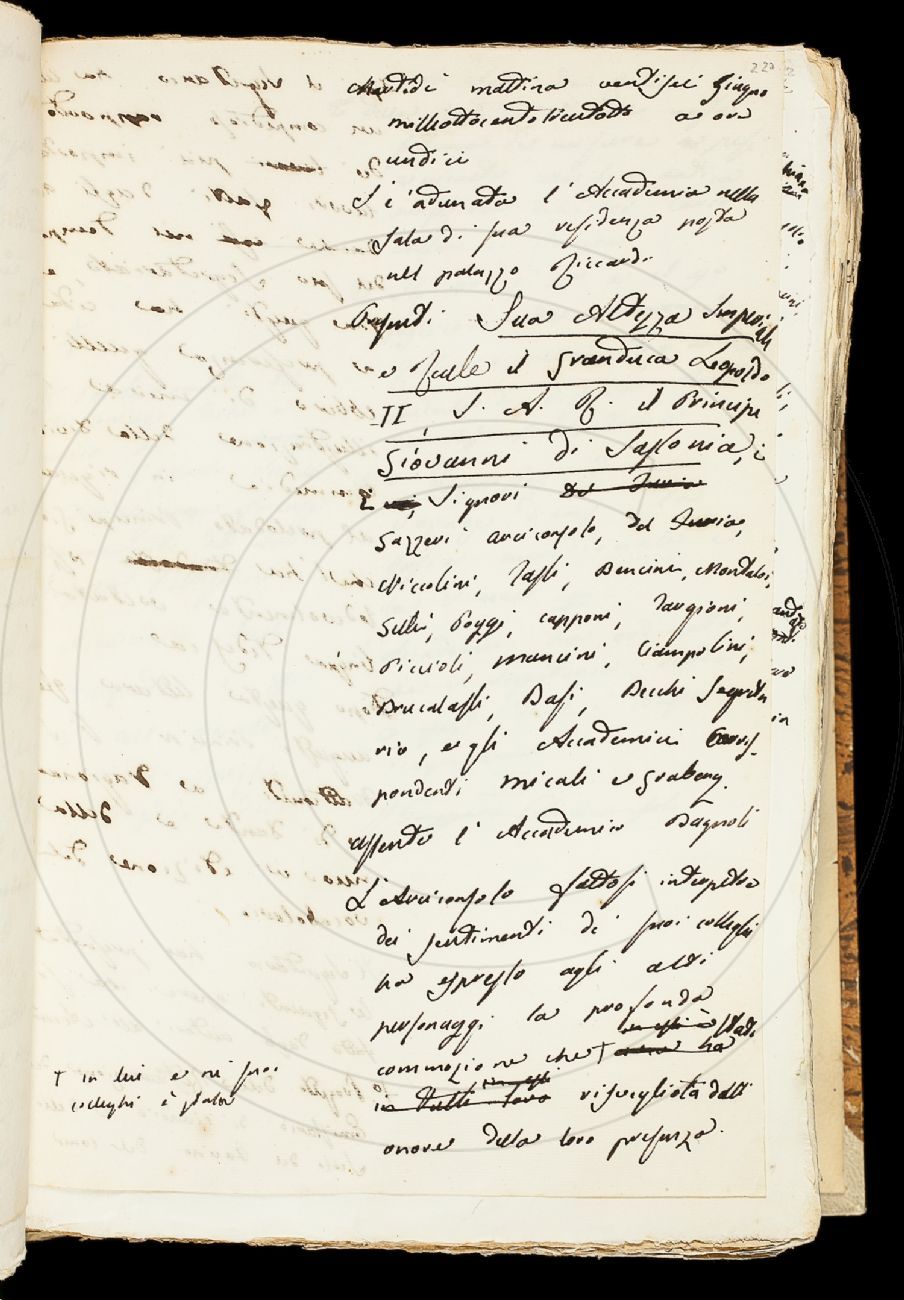 Martedì mattina ventisei Giugno
milleottocentotrentotto a ore
undici
S'è adunata l'Accademia nella
sala di sua residenza posta
nell palazzo Riccardi
Presenti Sua Altezza Imperiale
e Reale il Granduca Leopoldo
II, S. A. R. il Principe
Giovanni di Sassonia, i
Signori Del Furia
Gazzeri arciconsolo, Del Furia,
Niccolini, Tassi, Bencini, Montalvi,
Selvi, Poggi, Capponi, Targioni,
Piccioli, Mancini, Ciampolini,
Brucalassi, Basi, Becchi Segreta
rio, e gli Accademici Corris
pondenti Micali e Graberg.
assente l'Accademico Bagnoli
L'Arciconsolo fattosi interpetre
dei sentimenti di suoi colleghi
ha espresso agli alti
personaggi la profonda
commozione che †
† in lui e ne' suoi
colleghi è stata
in tutti loro risvegliata dall
onore della loro presenza.